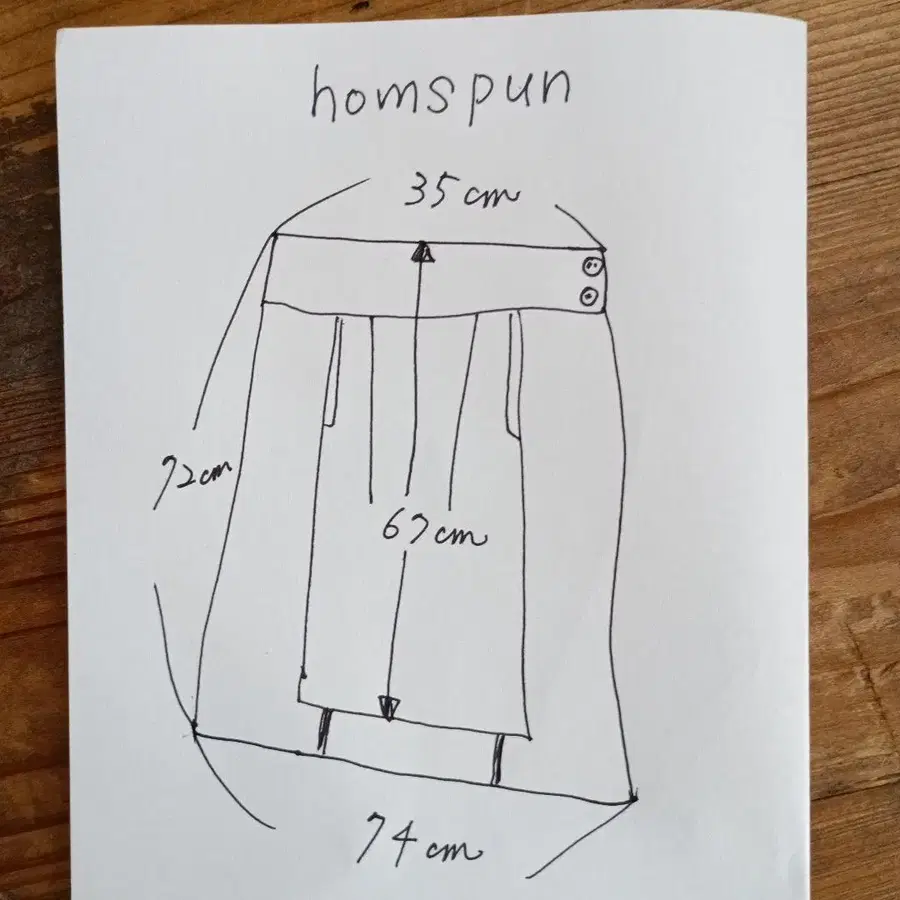 homspun
35cm
72cm
67cm
74cm